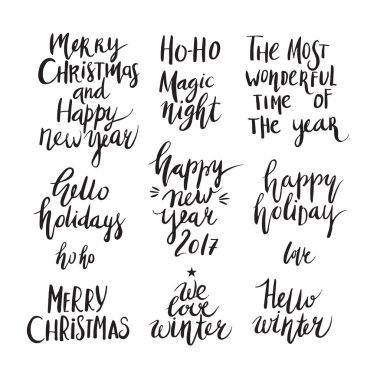 Merry
Christmas
and
Happy
new year
Ho-Ho
Magic
night
The Most
Wonderful
Time of
The year
hello
holidays
ho ho
happy
new
year
2017
happy
holiday
love
Merry
Christmas
we
love
winter
Hello
winter